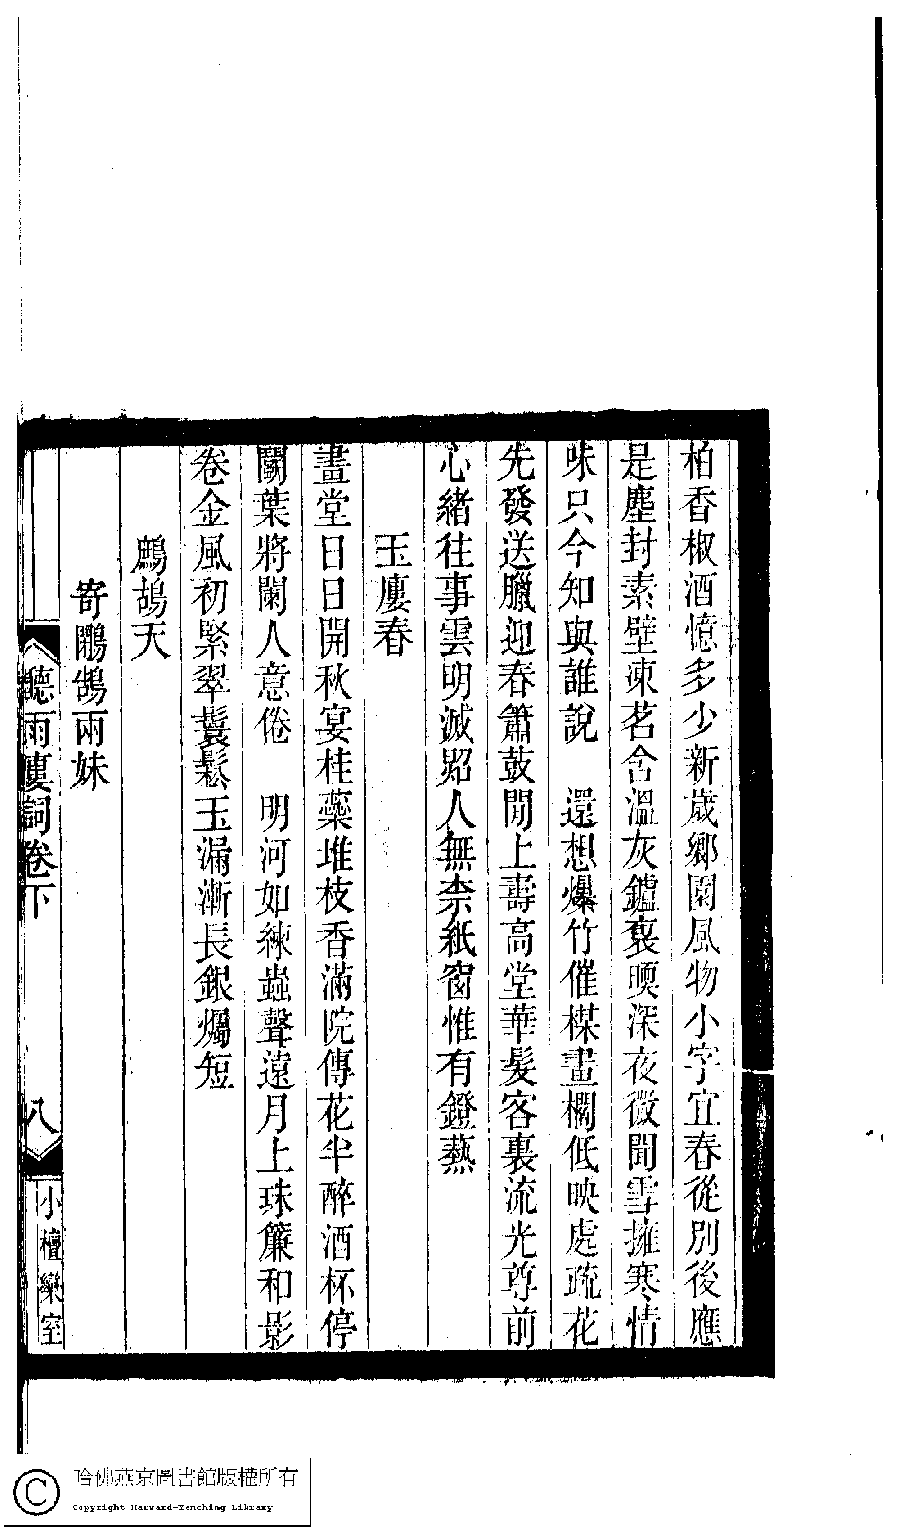 柏香椒酒憶多少新歲鄉園風物小字宜春從別後應
是塵封素壁凍茗含溫灰鑪裛煗深夜微聞雪擁寒情
味只今知與誰說　還想爆竹催楳畫欄低映處疏花
先發送臘迎春簫鼓閙上壽高堂華髮客裏流光尊前
心緒往事雲明滅照人無柰紙窗惟有鐙爇
玉廔春
畫堂日日開秋宴桂蘂堆枝香滿院傳花半醉酒杯停
鬭葉將闌人意倦　明河如練蟲聲遠月上珠簾和影
卷金風初緊翠鬟鬆玉漏漸長銀燭短
鷓鴣天
寄鵰鵠兩妹
聽雨廔詞卷下
八
小檀欒室
哈佛燕京圖書館版權所有
Copyright Harvard-Yenching Library